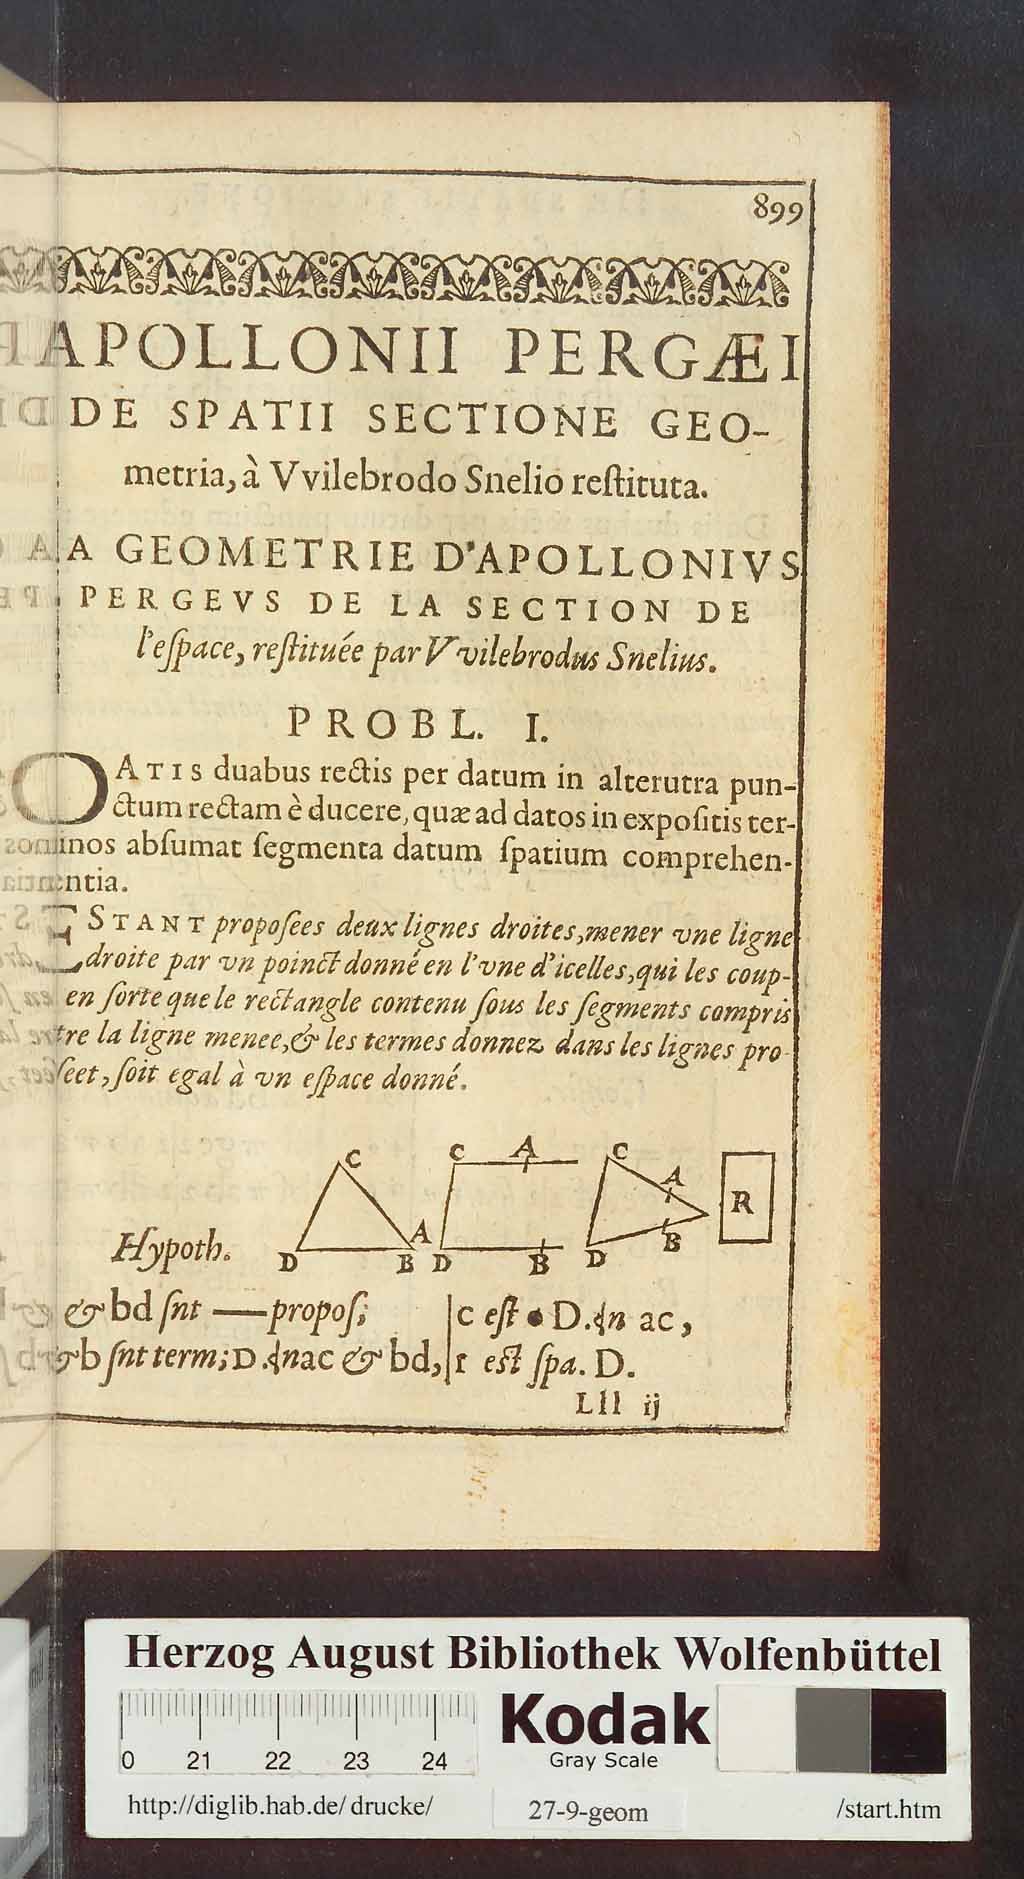 899
APOLLONII PERGÆI
DE SPATII SECTIONE GEO-
metria, à Vvilebrodo Snelio reſtituta.
A GEOMETRIE D'APOLLONIVS
PERGEVS DE LA SECTION DE
l'eſpace, reſtituée par Vvilebrodus Snelius.
PROBL. I.
ATIS duabus rectis per datum in alterutra pun-
ctum rectam è ducere, quæ ad datos in expoſitis ter-
minos abſumat ſegmenta datum ſpatium comprehen-
ntia.
ESTANT propoſees deux lignes droites, mener vne ligne
droite par vn poinct donné en l'vne d'icelles, qui les coup-
en ſorte que le rectangle contenu ſous les ſegments compris
tre la ligne menee, & les termes donnez dans les lignes pro-
ſeet, ſoit egal à vn eſpace donné.
C C A C A R
Hypoth. D B A D B D B
& bd ſnt — propoſ; c eſt • D. in ac,
& b ſnt term; D. in ac & bd, r est ſpa. D.
Lll ij
Herzog August Bibliothek Wolfenbüttel
Kodak
Gray Scale
0 21 22 23 24
http://diglib.hab.de/drucke/ 27-9-geom /start.htm